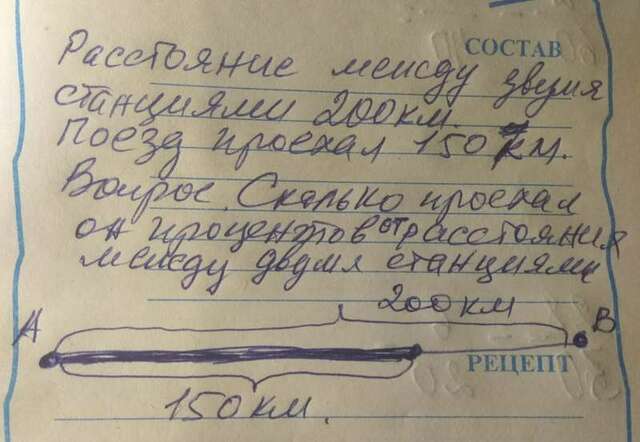 СОСТАВ
Расстояние между двумя
станциями 200 км
Поезд проехал 150 км.
Вопрос. Сколько проехал
он процентов от расстояния
между двумя станциями
200 км
А
В
РЕЦЕПТ
150 км.